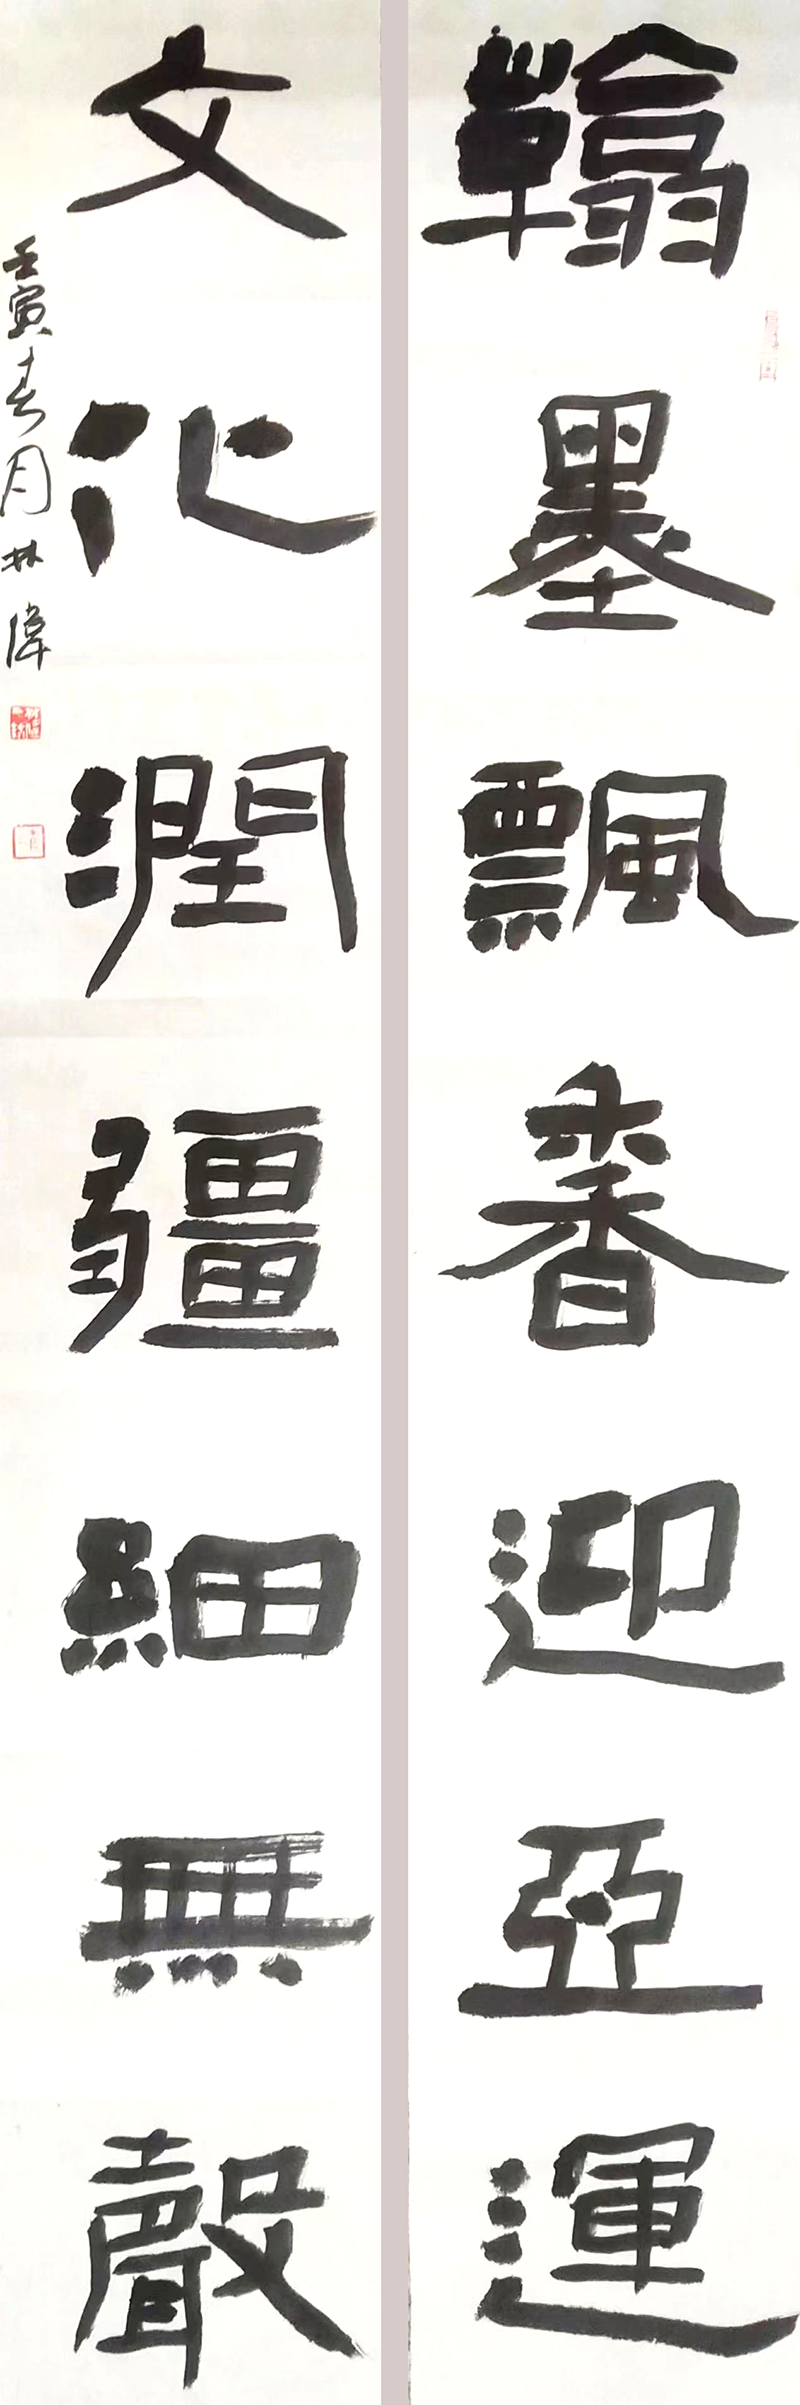 翰墨飄香迎亞運
文化潤疆細無聲
壬寅春月林偉